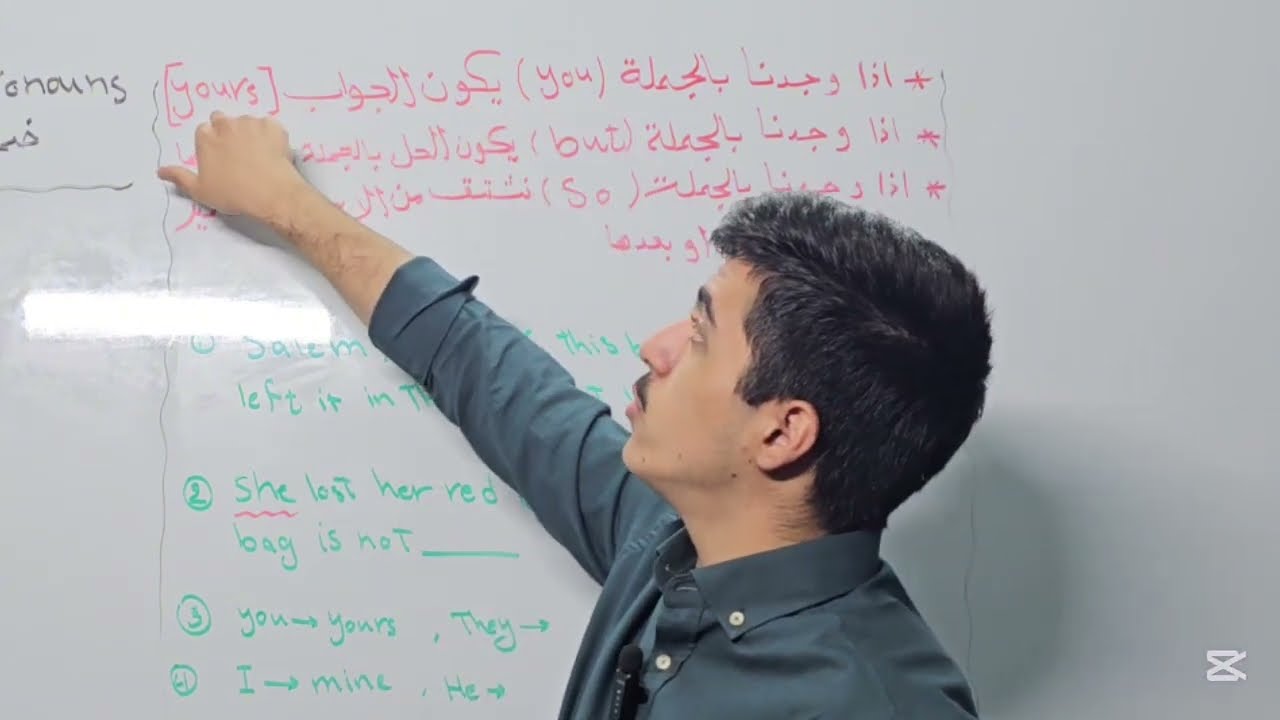 onouns
* اذا وجدنا بالجملة (you) يكون الجواب [yours]
* اذا وجدنا بالجملة (but) يكون الحل بالجملة
* اذا وجدنا بالجملة (so) نشتق من
او بعدها
① Salem this
left it in
② She lost her red
bag is not ______
③ you→yours , They→
④ I→mine , He→